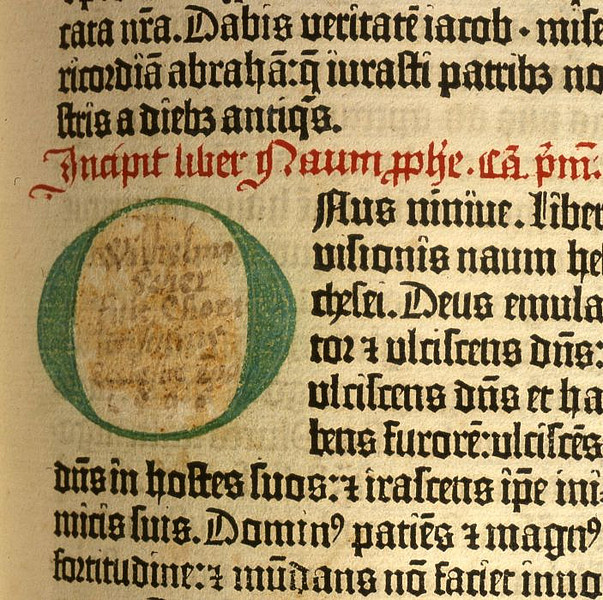 rata nr̃a. Dabis veritatē iacob · mise
ricordiā abrahā: q̄ iurasti patribꝫ no
stris a diebꝫ antiq̄s.
Incipit liber Naum ꝓphe. Cā. pm̄:
O Nus niniue. Liber
visionis naum hel
chesei. Deus emula
tor ⁊ ulciscens dn̄s:
ulciscens dn̄s et ha
bens furorē: ulciscēs
dn̄s in hostes suos: ⁊ irascens ip̄e ini
micis suis. Dominꝰ patiēs ⁊ magnꝰ
fortitudine: ⁊ mūdans nō faciet inno